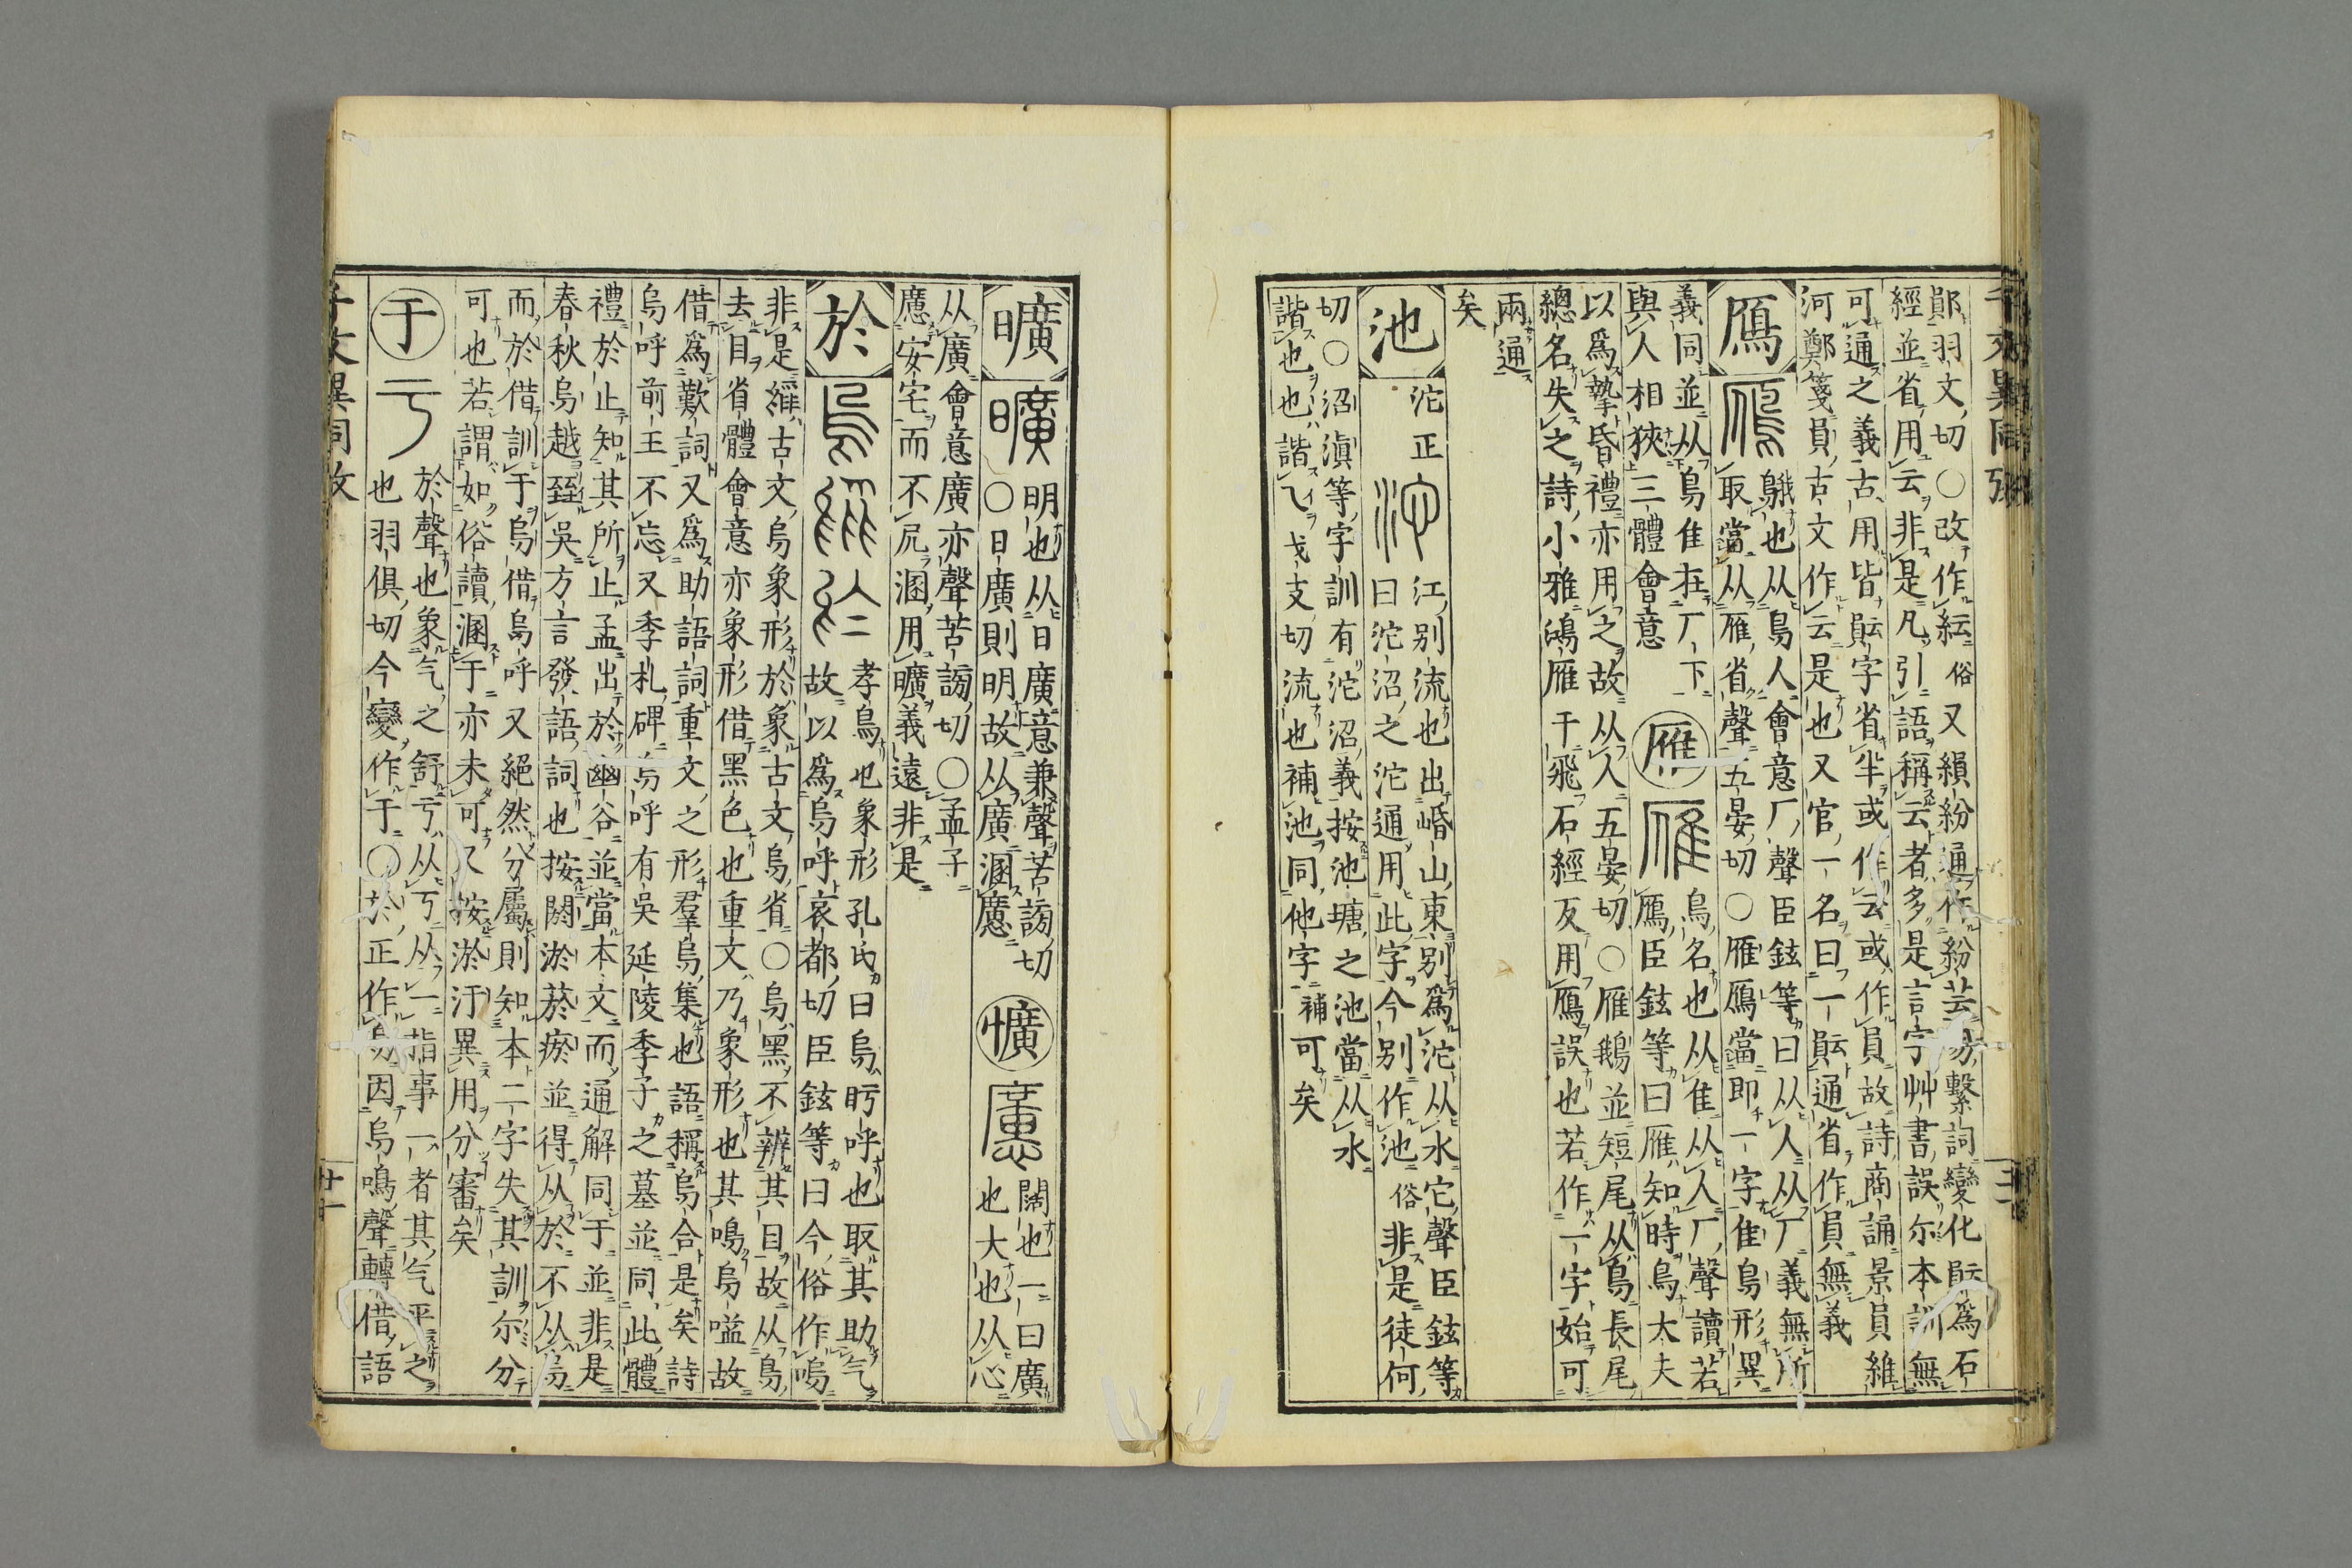 千文異同攷
鄖羽文切○改作紜俗又縜紛通作紛芸易繫詞變化䝭爲石
經並省用云非是凡引語稱云者多是言字艸書誤尓本訓無
可通之義古用皆䝭字省半或作云或作員故詩商誦景員維
河鄭箋員古文作云是也又官一名曰一䝭通省作員無義
鴈
鵝也从鳥人會意厂聲臣鉉等曰从人从厂義無所
取當从雁省聲五晏切○雁鴈當即一字隹鳥形異
義同並从鳥隹在厂下
與人相狹三體會意
雁
鳥名也从隹从人厂聲讀若
鴈臣鉉等曰雁知時鳥大夫
以爲摯昏禮亦用之故从人五晏切○雁鵝並短尾从鳥長尾
總名失之詩小雅鴻雁于飛石經反用鴈誤也若作一字始可
兩通
矣
池
沱正
江別流也出㟭山東別爲沱从水它聲臣鉉等
曰沱沼之沱通用此字今別作池俗非是徒何
切○沼滇等字訓有沱沼義按池塘之池當从水
諧也也諧乁弋支切流也補池同他字補可矣
曠
明也从日廣意兼聲苦謗切
○日廣則明故从廣溷懬
懭
闊也一曰廣
也大也从心
从廣會意廣亦聲苦謗切○孟子
懬安宅而不凥溷用曠義遠非是
於
孝鳥也象形孔氏曰烏盱呼也取其助气
故以爲烏呼哀都切臣鉉等曰今俗作嗚
非是𦀌古文烏象形於象古文烏省○烏黑不辨其目故从鳥
去目省體會意亦象形借黑色也重文乃象形也其鳴烏嗌故
借爲歎詞又爲助語詞重文之形羣烏集也語稱烏合是矣詩
烏呼前王不忘又季札碑烏呼有吳延陵季子之墓並同此體
禮於止知其所止孟出於幽谷並當本文而通解同于並非是
春秋烏越臸吳方言發語詞也按閼淤菸瘀並得从於不从烏
而於借訓于烏借烏呼又絕然分屬則知本二字失其訓尓分
可也若謂如俗讀溷于亦未可又按淤汙異用分審矣
于
於聲也象气之舒亏从丂从一指事一者其气平之
也羽俱切今變作于○於正作烏因烏鳴聲轉借語
千文異同攷
廿一